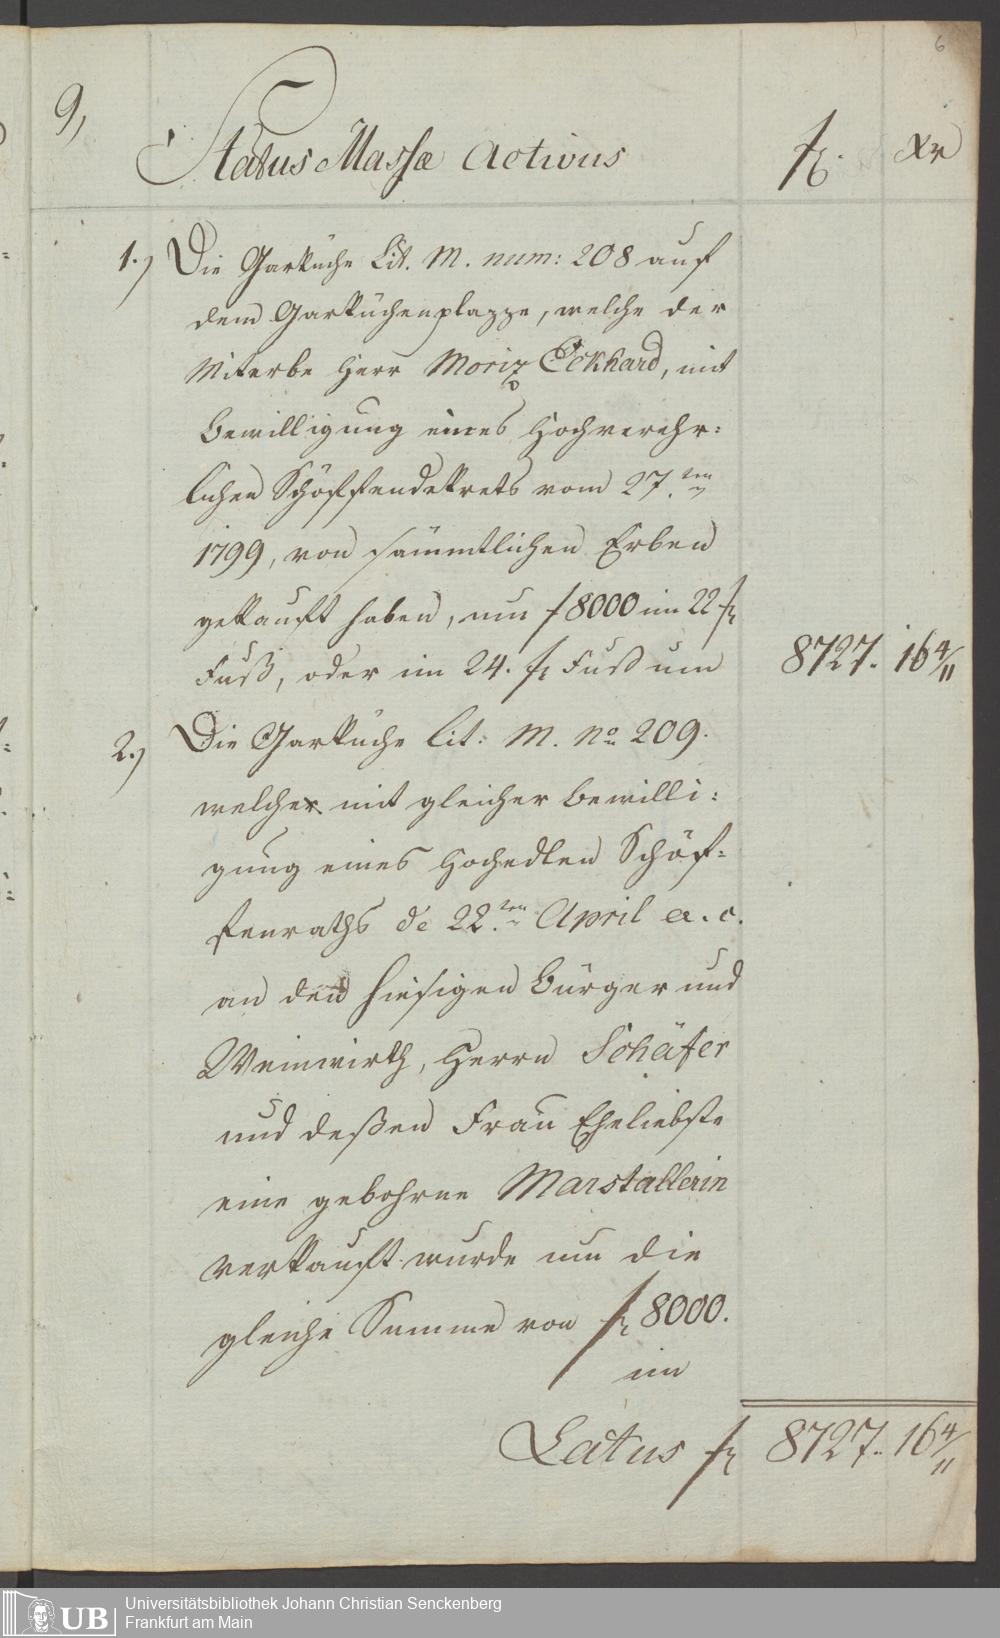 6
9,
Status Massæ Activus fl. Xr
1.) Die Garküche Lit. M. num: 208 auf
dem Garküchenplazze, welche der
Miterbe Herr Moriz Eckhard, mit
Bewilligung eines Hochverehr:
lichen Schöffendekrets vom 27.ten
1799, von sämmtlichen Erben
gekauft haben, um f 8000 im 22 fl
Fuß, oder im 24. fl Fuß um 8727. 16 4/11
2.) Die Garküche lit: M. No 209.
welche mit gleicher Bewilli:
gung eines Hochedlen Schöf:
fenraths de 22.ten April a. c.
an den hiesigen Bürger und
Weinwirth, Herrn Schäfer
und deßen Frau Eheliebste
eine gebohrne Marstallerin
verkauft wurde um die
gleiche Summe von fl 8000.
im
Latus fl 8727. 16 4/11
UB Universitätsbibliothek Johann Christian Senckenberg
Frankfurt am Main